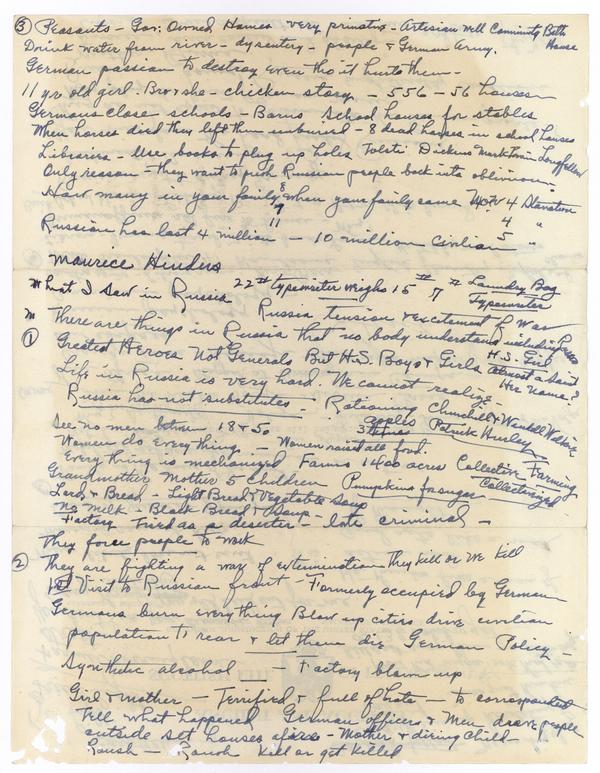 ③ Peasants - Gov. Owned Homes very primative - Artesian Well Community Bath House
Drink water from river - dysentery - people & German Army.
German passion to destroy even tho it hurts them -
11 yr old girl. Bro & she - chicken story - 556 - 56 houses
Germans close schools - Barns School houses for stables
When horses died they left them unburied - 8 dead horses in school houses
Libraries - Use books to plug up holes Tolsti Dickens Mark Twain Longfellow
Only reason - they want to push Russian people back into oblivion.
How many in your family 8 when your family came now 4 Starvation
9 4 "
11 5 "
Russian has lost 4 million - 10 million Civilian
Maurice Hindus
What I saw in Russia 22# typewriter weighs 15# 7# Laundry Bag
Typewriter
Russia tension & excitement of War
① There are things in Russia that no body understands including Russians
Greatest Heroes Not Generals But H.S. Boys & Girls H.S. Girl
Life in Russia is very hard. We cannot realize - almost a Saint
Her name?
Russia has not substitutes : Rationing Churchill & Wendell Willkie
apples Patrick Hurley
See no men between 18 & 50 3 times
Women do everything - Women raised all food.
Everything is mechanized Farms 1400 acres Collective Farming
Grandmother Mother 5 Children Pumpkins for sugar Collectivized
Lard & Bread - Light Bread & Vegetable Soup
No Milk - Black Bread & Soup -
Factory Tried as a deserter - late criminal -
They force people to work
② They are fighting a war of extermination They kill or we kill
1st Visit to Russian front - Formerly occupied by German
Germans burn everything Blow up cities drive civilian
population to rear & let them die German Policy -
Synthetic alcohol - Factory blown up
Girl & mother - Terrified & full of hate - to correspondent
Tell what happened German officers & Men drove people
outside set houses afire - Mother & dying child
Kill or get killed